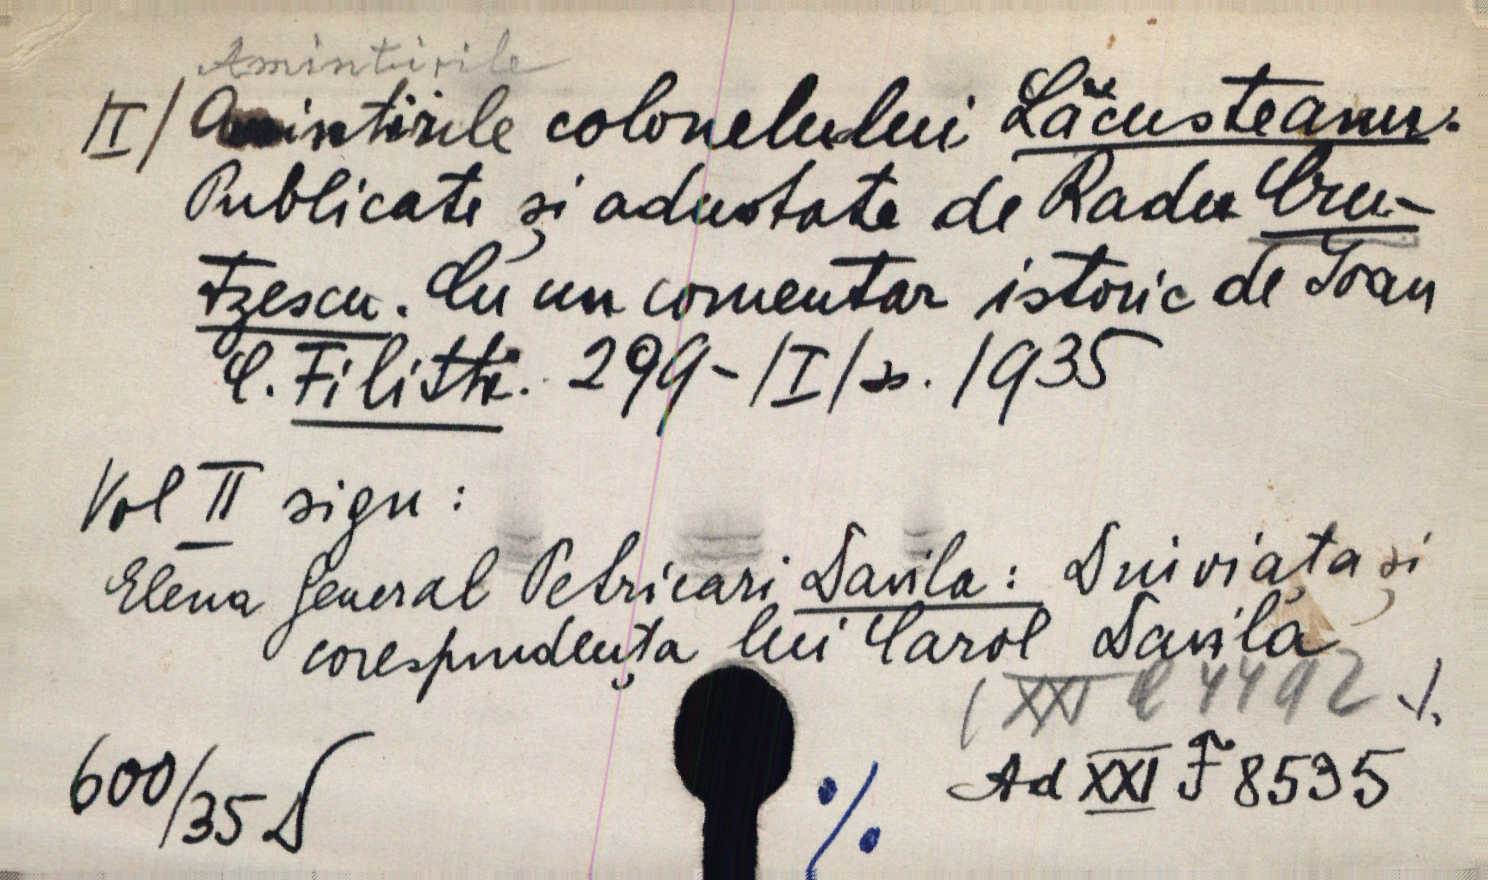 Amintirile
II/ Amintirile colonelului Lăcusteanu.
Publicate și adnotate de Radu Cru-
tzescu. Cu un comentar istoric de Ioan
C. Filitti. 299-/I/ s. 1935
Vol II sign:
Elena General Peticari Davila: Din viața și
corespondența lui Carol Davila
( XXI C 4492 ./.
Ad XXI F 8535
600/35 D
%